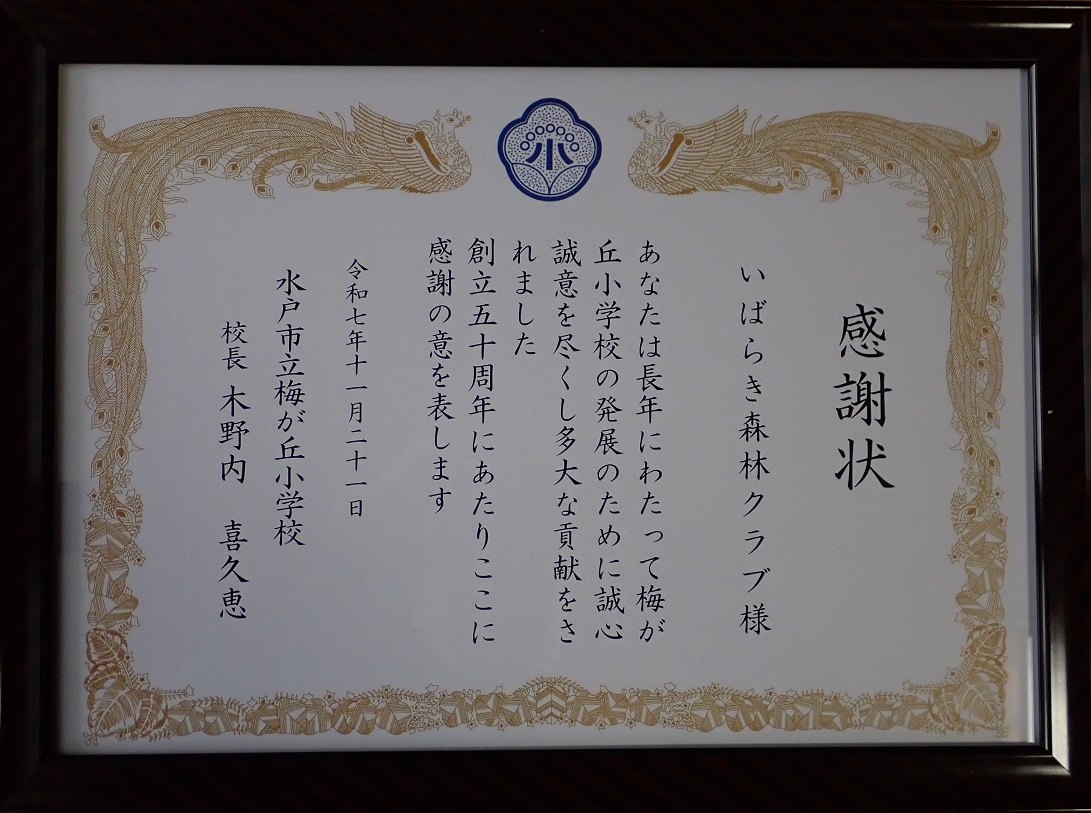 小
感謝状
いばらき森林クラブ様
あなたは長年にわたって梅が
丘小学校の発展のために誠心
誠意を尽くし多大な貢献をさ
れました
創立五十周年にあたりここに
感謝の意を表します
令和七年十一月二十一日
水戸市立梅が丘小学校
校長 木野内 喜久恵